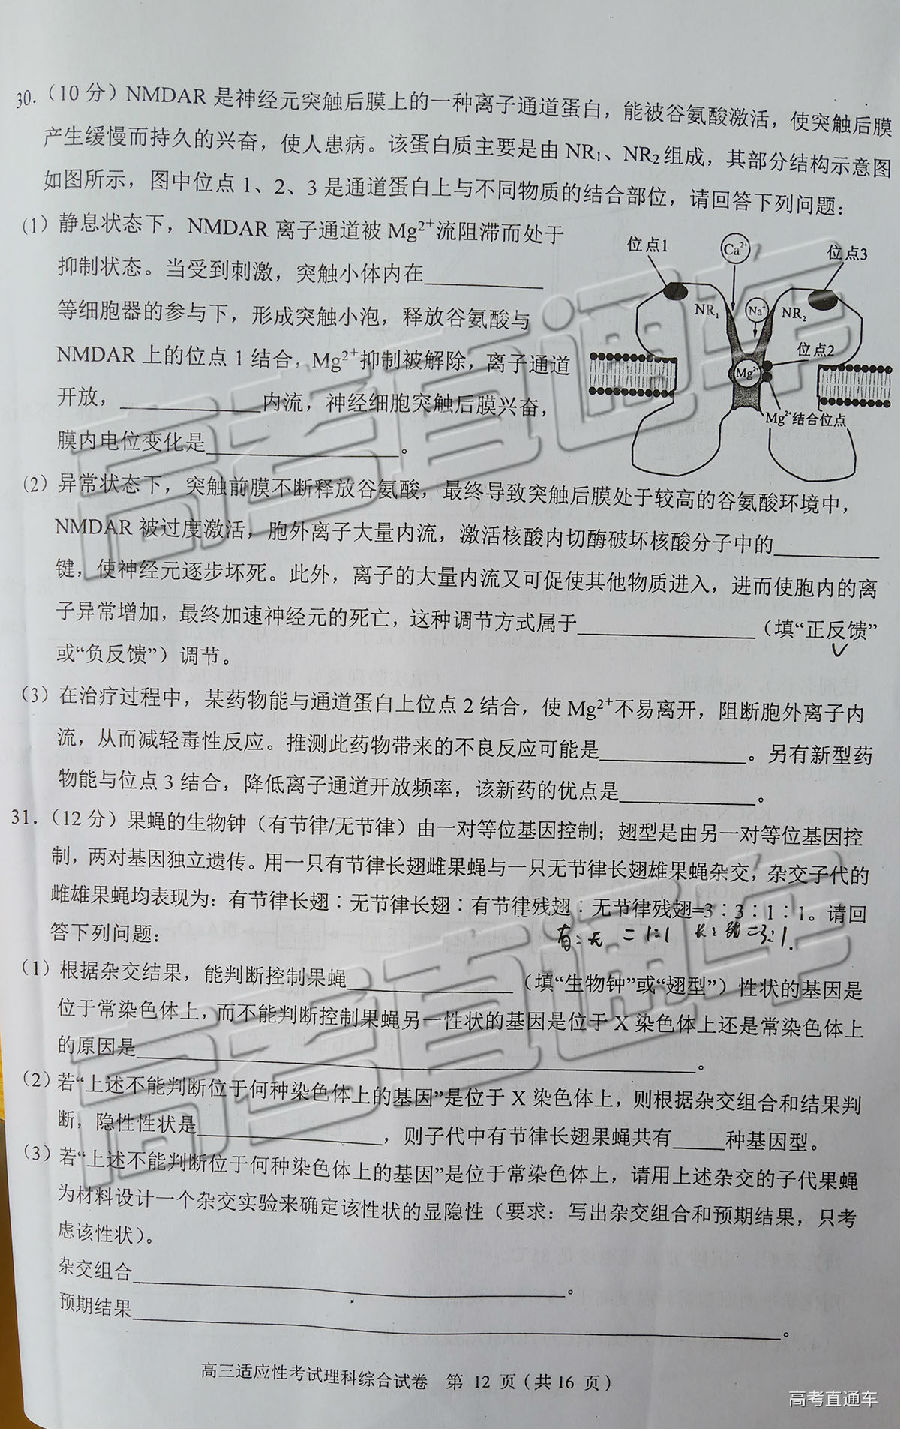 30.（10分）NMDAR 是神经元突触后膜上的一种离子通道蛋白，能被谷氨酸激活，使突触后膜
产生缓慢而持久的兴奋，使人患病。该蛋白质主要是由 NR₁、NR₂组成，其部分结构示意图
如图所示，图中位点 1、2、3 是通道蛋白上与不同物质的结合部位，请回答下列问题：
（1）静息状态下，NMDAR 离子通道被 Mg²⁺流阻滞而处于
抑制状态。当受到刺激，突触小体内在____________
等细胞器的参与下，形成突触小泡，释放谷氨酸与
NMDAR 上的位点 1 结合，Mg²⁺抑制被解除，离子通道
开放，______________内流，神经细胞突触后膜兴奋，
膜内电位变化是__________________。
位点1
Ca²⁺
位点3
NR₁
Na⁺
NR₂
位点2
Mg²⁺
Mg²⁺结合位点
（2）异常状态下，突触前膜不断释放谷氨酸，最终导致突触后膜处于较高的谷氨酸环境中，
NMDAR 被过度激活，胞外离子大量内流，激活核酸内切酶破坏核酸分子中的__________
键，使神经元逐步坏死。此外，离子的大量内流又可促使其他物质进入，进而使胞内的离
子异常增加，最终加速神经元的死亡，这种调节方式属于________________（填“正反馈”
或“负反馈”）调节。
（3）在治疗过程中，某药物能与通道蛋白上位点 2 结合，使 Mg²⁺不易离开，阻断胞外离子内
流，从而减轻毒性反应。推测此药物带来的不良反应可能是______________。另有新型药
物能与位点 3 结合，降低离子通道开放频率，该新药的优点是_____________。
31.（12分）果蝇的生物钟（有节律/无节律）由一对等位基因控制；翅型是由另一对等位基因控
制，两对基因独立遗传。用一只有节律长翅雌果蝇与一只无节律长翅雄果蝇杂交，杂交子代的
雌雄果蝇均表现为：有节律长翅∶无节律长翅∶有节律残翅∶无节律残翅=3∶3∶1∶1。请回
有:无 =1:1 长:残=3:1.
答下列问题：
（1）根据杂交结果，能判断控制果蝇________________（填“生物钟”或“翅型”）性状的基因是
位于常染色体上，而不能判断控制果蝇另一性状的基因是位于 X 染色体上还是常染色体上
的原因是______________________________________________________。
（2）若“上述不能判断位于何种染色体上的基因”是位于 X 染色体上，则根据杂交组合和结果判
断，隐性性状是__________________，则子代中有节律长翅果蝇共有_____种基因型。
（3）若“上述不能判断位于何种染色体上的基因”是位于常染色体上，请用上述杂交的子代果蝇
为材料设计一个杂交实验来确定该性状的显隐性（要求：写出杂交组合和预期结果，只考
虑该性状）。
杂交组合__________________________________________。
预期结果______________________________________________________________。
高三适应性考试理科综合试卷 第 12 页（共16 页）
高考直通车
高考直通车
高考直通车